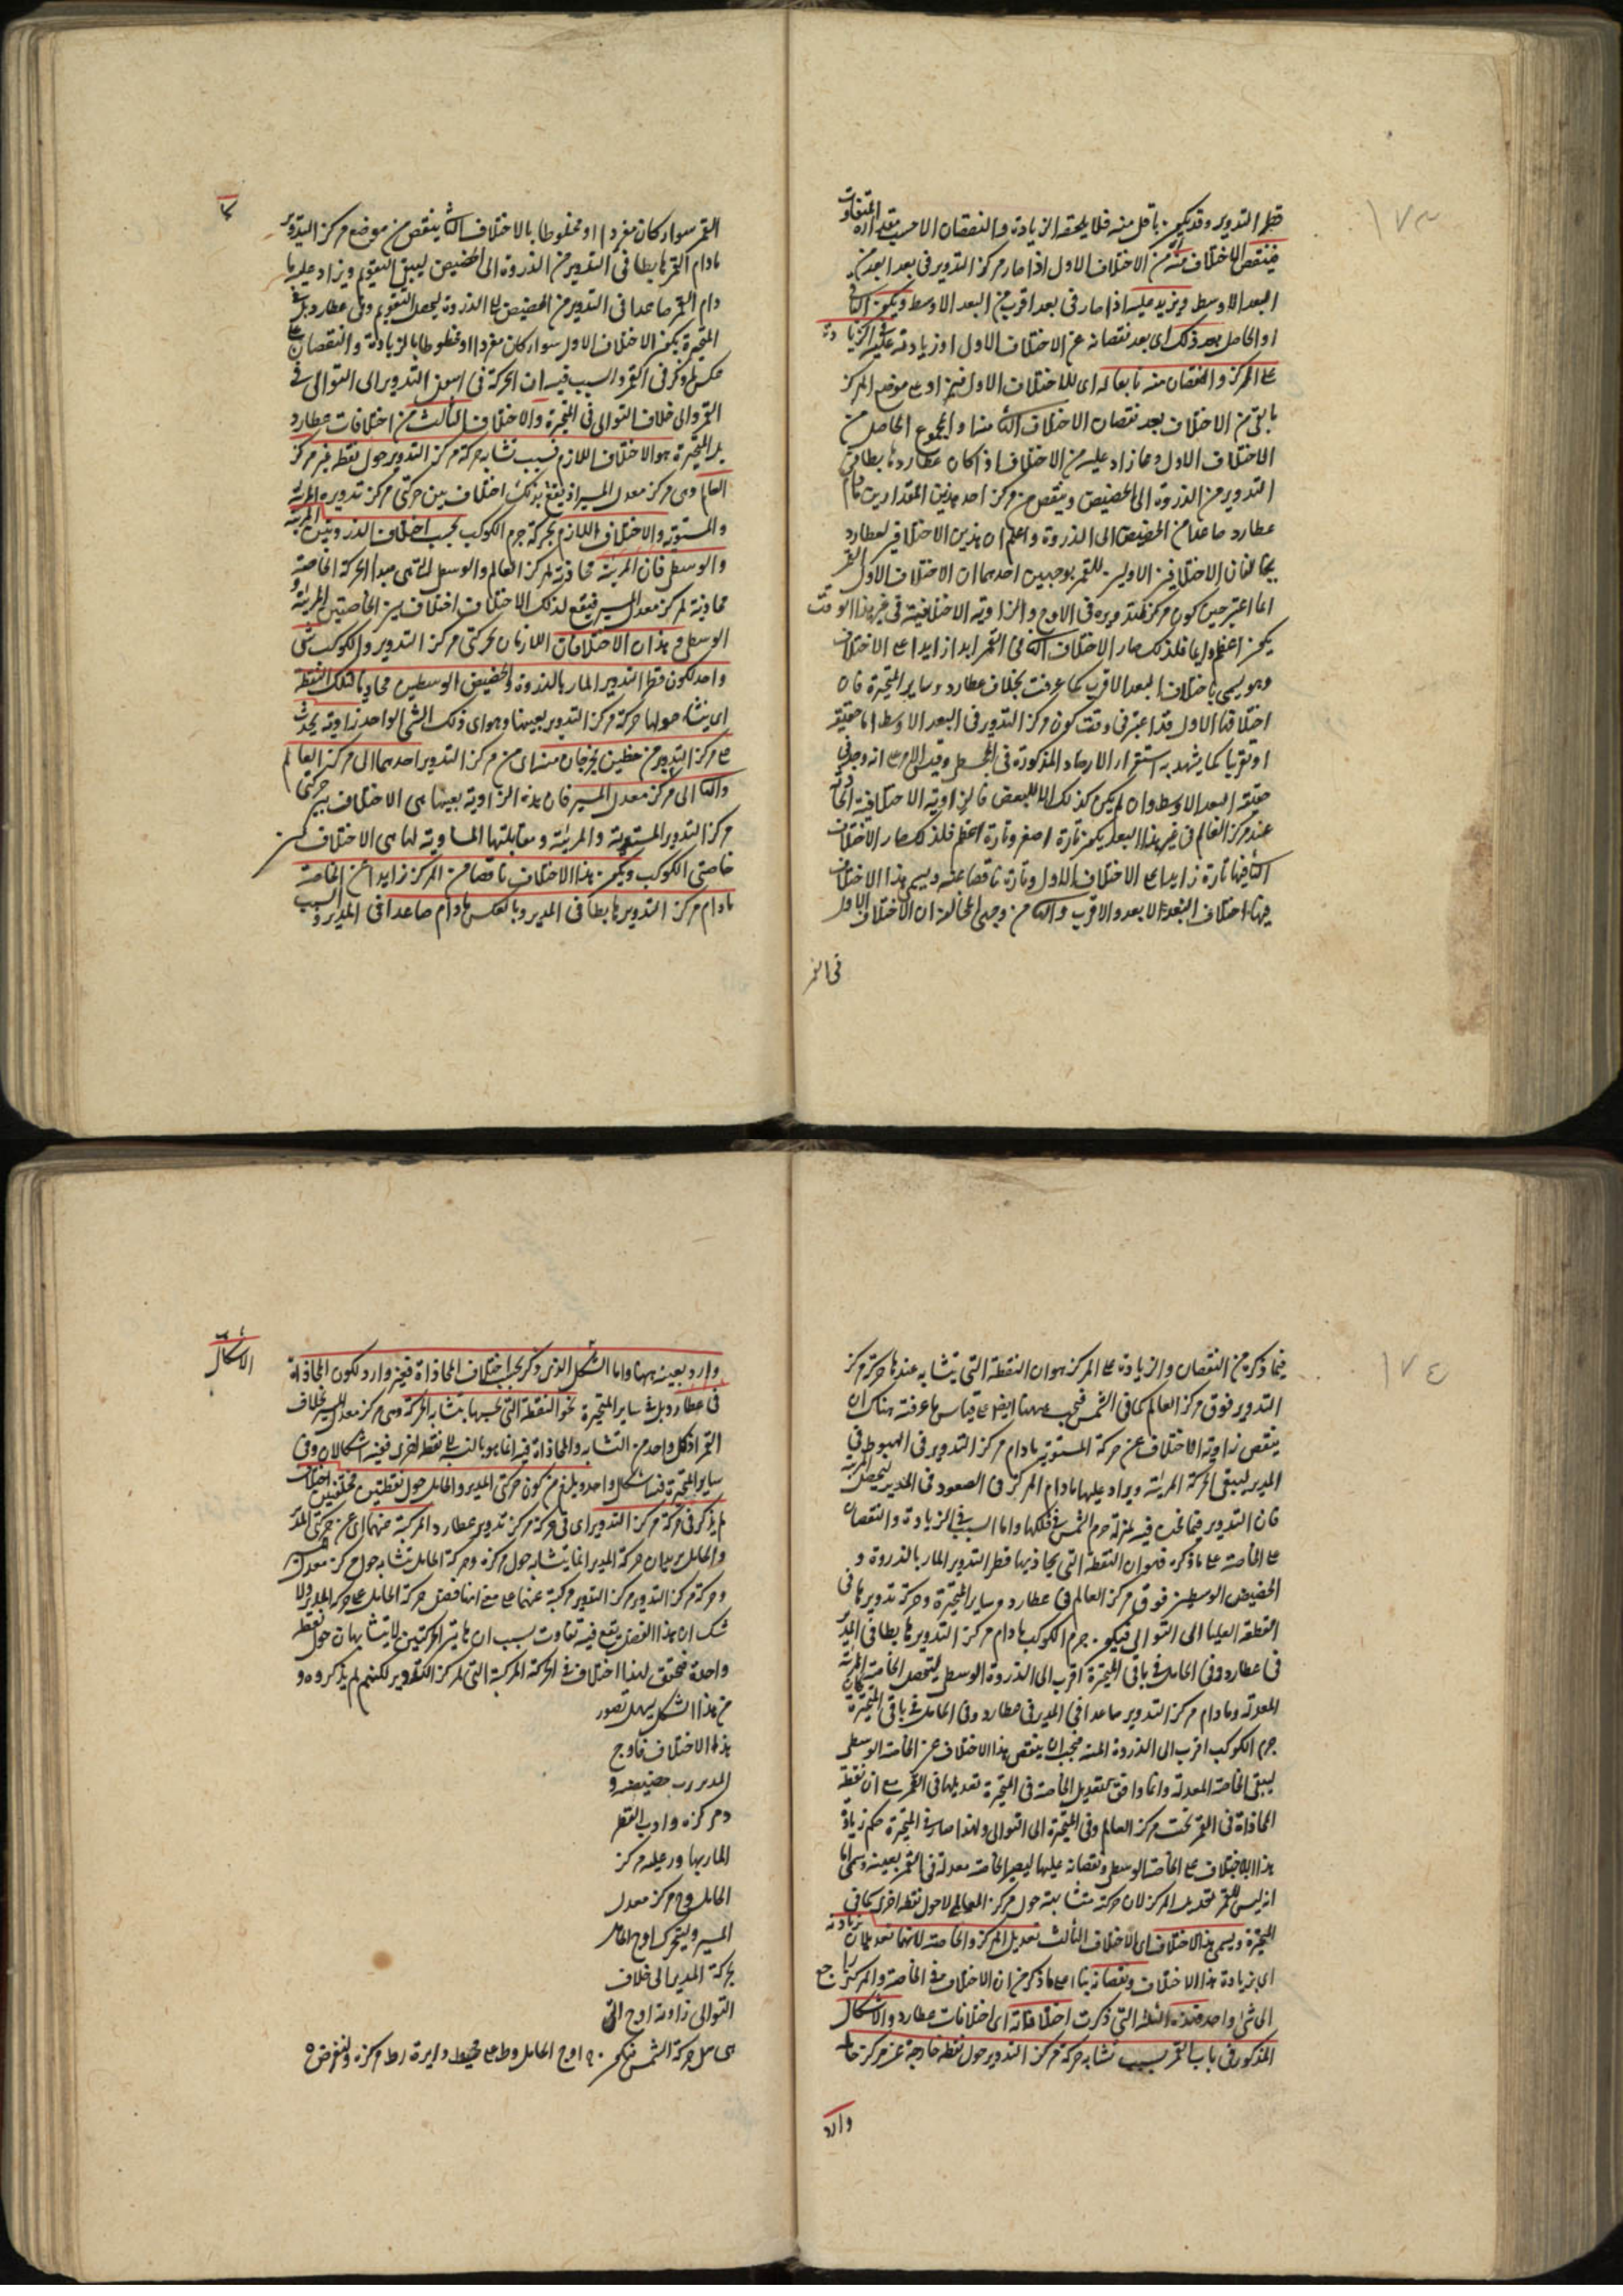 ١٧٣
قطر التدوير وقد يكون باقل منه فلا يلحقه الزيادة والنقصان الا بحسب مقداره المتفاوت
فينقص الاختلاف منه من الاختلاف الاول اذا صار مركز التدوير فى بعد ابعد من
البعد الاوسط ويزيد عليه اذا صار فى بعد اقرب من البعد الاوسط ويكون الباقى
او الحاصل بعد ذلك اى بعد نقصانه عن الاختلاف الاول او زيادته عليه فى الزيادة
على المركز والنقصان منه تابعا له اى للاختلاف الاول فيزاد على موضع المركز
ما بقى من الاختلاف بعد نقصان الاختلاف الثانى منها والمجموع الحاصل من
الاختلاف الاول وما زاد عليه من الاختلاف اذا كان عطارد هابطا من
التدوير من الذروة الى الحضيض وينقص من مركز احد هذين المقدارين مادام
عطارد صاعدا من الحضيض الى الذروة واعلم ان هذين الاختلافين لعطارد
يخالفان الاختلافين الاولين للقمر بوجهين احدهما ان الاختلاف الاول للقمر
انما اعتبر حين كون مركز تدويره فى الاوج والزاوية الاختلافية فى غير هذا الوقت
يكون اعظم دايما فلذلك صار الاختلاف الثانى فى القمر ابدا زايدا على الاختلاف
وهو يسمى باختلاف البعد الاقرب كما عرفت بخلاف عطارد وساير المتحيرة فان
اختلافها الاول قد اعتبر فى وقت كون مركز التدوير فى البعد الاوسط اما حقيقة
او تقريبا كما يشهد به استقراء الارصاد المذكورة فى المجسطى وقد
حقيقة البعد الاوسط وان لم يكن كذلك الا للبعض فالزاوية الاختلافية الحادثة
عند مركز العالم فى غير هذا البعد يكون تارة اصغر وتارة اعظم فلذلك صار الاختلاف
الثانى فيها تارة زايدا على الاختلاف الاول وتارة ناقصا عنه ويسمى هذا الاختلاف
فيها اختلاف البعد الابعد والاقرب والثانى من وجهى المخالفة ان الاختلاف الاول
فى القمر
القمر سواء كان مفردا او مخلوطا بالاختلاف الثانى ينقص من موضع مركز التدوير
مادام القمر هابطا فى التدوير من الذروة الى الحضيض ليبقى التقويم ويزاد عليه ما
دام القمر صاعدا فى التدوير من الحضيض الى الذروة ليحصل التقويم وفى عطارد بل فى
المتحيرة يكون الاختلاف الاول سواء كان مفردا او مخلوطا بالزيادة والنقصان على
عكس ما ذكر فى القمر والسبب فيه ان الحركة فى اسفل التدوير الى التوالى فى
القمر والى خلاف التوالى فى المتحيرة والاختلاف الثالث من اختلافات عطارد
بل المتحيرة هو الاختلاف اللازم بسبب تشابه حركة مركز التدوير حول نقطة غير مركز
العالم وهى مركز معدل المسير اذ يقع بذلك اختلاف بين حركتى مركز تدويره المرئية
والمستوية والاختلاف اللازم لحركة جرم الكوكب بحسب اختلاف الذروتين المرئية
والوسطى فان المرئية محاذية لمركز العالم والوسطى التى هى مبدا الحركة الخاصة
محاذية لمركز معدل المسير فيقع لذلك الاختلاف اختلاف بين الخاصتين المرئية و
الوسطى وهذان الاختلافان اللازمان لحركتى مركز التدوير والكوكب شى
واحد لكون قطر التدوير المار بالذروة والحضيض الوسطيين محاذيا لتلك النقطة
اى يتشابه حولها حركة مركز التدوير بعينها وهو اى ذلك الشى الواحد زاوية يحدث
على مركز التدوير من خطين يخرجان منه اى من مركز التدوير احدهما الى مركز العالم
والثانى الى مركز معدل المسير فان هذه الزاوية بعينها هى الاختلاف بين حركتى
مركز التدوير المستوية والمرئية ومقابلتها المساوية لها هى الاختلاف بين
خاصتى الكوكب ويكون هذا الاختلاف ناقصا من المركز زايدا على الخاصة
مادام مركز التدوير هابطا فى المدير وبالعكس مادام صاعدا فى المدير والسبب
١٧٤
فيما ذكره من النقصان والزيادة على المركز هو ان النقطة التى يتشابه عندها حركة مركز
التدوير فوق مركز العالم كما فى الشمس فيجب ههنا ايضا على قياس ما عرفته هناك ان
ينقص زاوية الاختلاف عن حركة المستوية مادام مركز التدوير فى الهبوط فى
المدير ليبقى الحركة المرئية ويزاد عليها مادام المركز فى الصعود فى المدير ليحصل المرئية
فان التدوير فيما نحن فيه بمنزلة جرم الشمس فى فلكها واما السبب فى الزيادة والنقصان
على الخاصة على ما ذكره فهو ان النقطة التى يحاذيها قطر التدوير المار بالذروة و
الحضيض الوسطين فوق مركز العالم فى عطارد وساير المتحيرة وحركة تدويرها فى
القطعة العليا الى التوالى فيكون جرم الكوكب مادام مركز التدوير هابطا فى المدير
فى عطارد وفى الحامل فى باقى المتحيرة اقرب الى الذروة الوسطى ليتحصل الخاصة المرئية
المعدلة ومادام مركز التدوير صاعدا فى المدير فى عطارد وفى الحامل فى باقى المتحيرة كان
جرم الكوكب اقرب الى الذروة المرئية فيجب ان ينقص هذا الاختلاف عن الخاصة الوسطى
ليبقى الخاصة المعدلة وانما وافق تعديل الخاصة فى المتحيرة تعديلها فى القمر مع ان نقطة
المحاذاة فى القمر تحت مركز العالم وفى المتحيرة الى التوالى ولهذا صار فى المتحيرة حكم زيادة
هذا الاختلاف على الخاصة الوسطى ونقصانه عليها ليصير الخاصة معدلة فى القمر بعينه وسمى انا
انه ليس للقمر تعديل المركز لان حركته متشابهة حول مركز العالم لا حول نقطة اخرى كما فى
المتحيرة ويسمى هذا الاختلاف اى الاختلاف الثالث تعديل المركز والخاصة لانهما تعدلان بزيادته
اى بزيادة هذا الاختلاف ونقصانه بناء على ما ذكر من ان الاختلاف فى الخاصة والمركز راجع
الى شئ واحد فهذه الثلثة التى ذكرت اختلافاته اى اختلافات عطارد والاشكال
المذكور فى باب القمر بسبب تشابه حركة مركز التدوير حول نقطة خارجة عن مركز حامله
وارد
وارد بعينه ههنا واما الشكل الذى ذكر بحسب اختلاف المحاذاة فغير وارد لكون المحاذاة
فى عطارد بل فى ساير المتحيرة نحو النقطة التى بحسبها يتشابه الحركة وهى مركز معدل المسير بخلاف
القمر اذ كل واحد من التشابه والمحاذاة فيه انما هو بالنسبة الى نقطة اخرى ففيه اشكالان وفى
ساير المتحيرة فيه اشكال واحد ويلزم من كون حركتى المدير والحامل حول نقطتين مختلفتين اختلاف
لم يذكر فى حركة مركز التدوير اى فى حركة مركز تدوير عطارد المركبة عنهما اى عن حركتى المدير
والحامل يريد ان حركة المدير انما يتشابه حول مركزه وحركة الحامل يتشابه حول مركز معدل المسير
وحركة مركز التدوير مركبة عنهما على معنى انها فضل حركة الحامل على حركة المدير ولا
شك ان هذا الفضل يقع فيه تفاوت بسبب ان هاتين الحركتين لا يتشابهان حول نقطة
واحدة فتحقق لهذا اختلاف فى الحركة المركبة التى لمركز التدوير لكنهم لم يذكروه و
من هذا الشكل يسهل تصور
هذا الاختلاف فاوج
المدير ب حضيضه و
د مركزه و ا د ب القطر
المار بها و ر عليه مركز
الحامل و ح مركز معدل
المسير وليتحرك اوج الحامل
بحركة المدير الى خلاف
التوالى زاوية اوج التى
هى مثل حركة الشمس فيكون اوج الحامل و ط على محيط دايرة ر ط مركزه ولنفرض
الاشكال